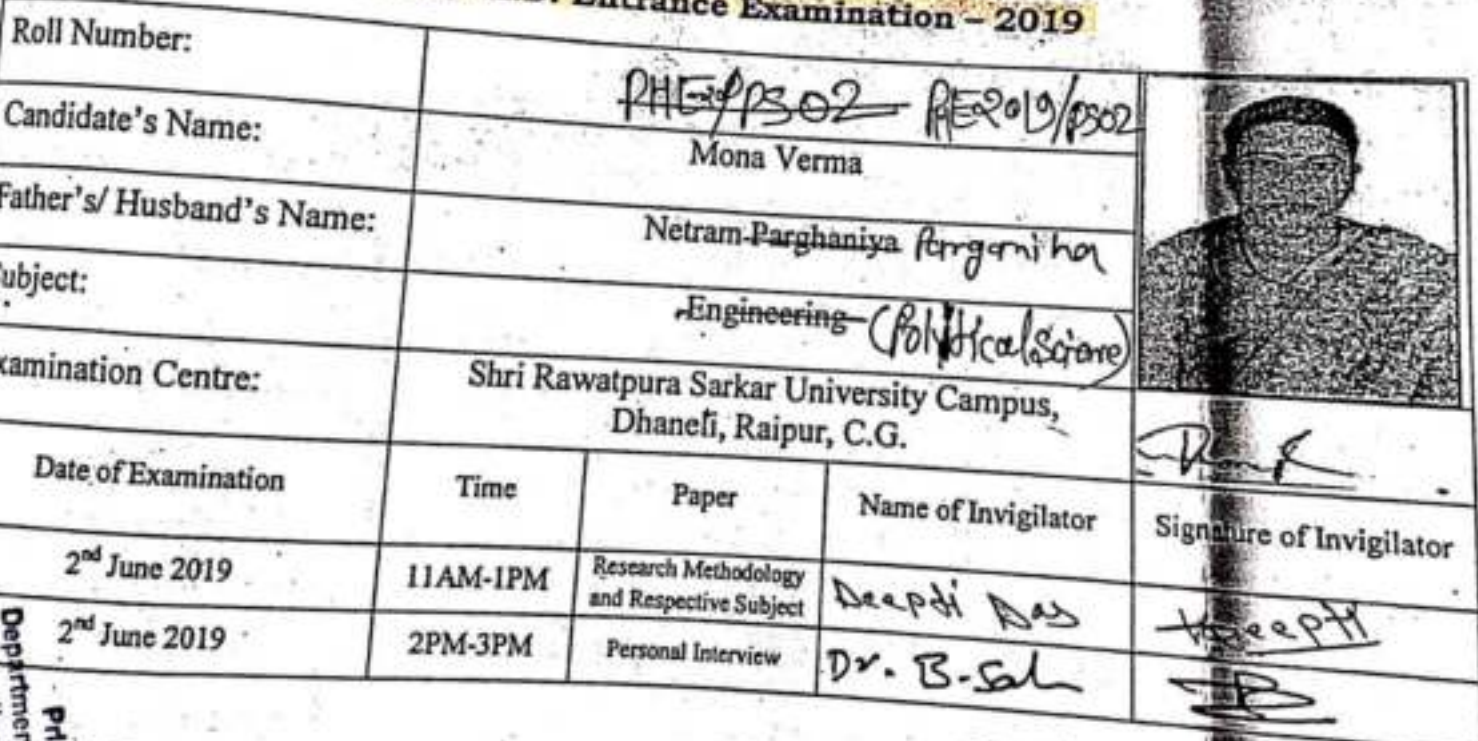 Entrance Examination – 2019
Roll Number:
PHE2019/PS02
Candidate's Name:
Mona Verma
Father's/ Husband's Name:
Netram Parghaniya Arrganiha
ubject:
Engineering (Political Science)
xamination Centre:
Shri Rawatpura Sarkar University Campus,
Dhaneli, Raipur, C.G.
Date of Examination Time Paper Name of Invigilator Signature of Invigilator
2nd June 2019 11AM-1PM Research Methodology
and Respective Subject Deepti Das Deepti
2nd June 2019 2PM-3PM Personal Interview Dr. B. Sah
Departmen
Pri